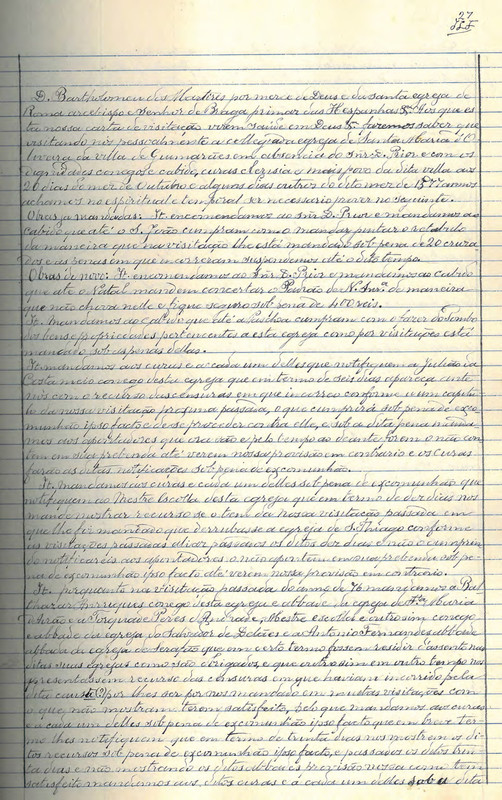 27
D. Bartholomeu dos Martires por merce de Deus e da santa egreja de
Roma arcebispo e senhor de Braga primaz das Hespanhas &.ª Aos que es-
ta nossa carta de visitação virem saude em Deus &.ª fazemos saber que
visitando nós pessoalmente a collegiada egreja de Santa Maria d'O-
liveira da villa de Guimarães em absencia do Snr. D. Prior e com os
dignidades conegos e cabido, curas clerisia e mais povo da dita villa aos
26 dias do mez de outubro e alguns dias outros do dito mez de 1571 annos
achamos no espiritual e temporal ser necessario prover no seguinte.
Obras ja mandadas: It. encomendamos ao snr D. Prior e mandamos ao
cabido que até o S. João cumpram com o mandar pintar o retabolo
da maneira que na visitação lhe está mandado sob pena de 20 cruza-
dos e as penas em que incorreram suspendemos até o dito tempo.
Obras de novo: It. encomendamos ao Snr D. Prior e mandamos ao cabido
que até o Natal mandem concertar o Padrão de N. Snr.ª de maneira
que não chova nelle e fique seguro sob pena de 400 reis.
It. Mandamos ao cabido que até a Paschoa cumpram com o fazer do tombo
dos bens e propriedades pertencentes a esta egreja como por visitações está
mandado sob as penas dellas.
It. mandamos aos curas e a cada um delles que notifiquem a Julião da
Costa meio conego desta egreja que em termo de seis dias apareça ante
nós com o recurso das censuras em que incorreo conforme a um capitu-
lo da nossa visitação proxima passada, o que cumprirá sob pena de exco-
munhão ipso facto e de se proceder contra elle, e sob a dita pena manda-
mos aos apontadores que ora são e pelo tempo ao deante forem o não con-
tem em sua prebenda até verem nossa provisão em contrario e os curas
farão as ditas notificações sob pena de excomunhão.
It. mandamos aos curas e a cada um delles sob pena de excomunhão que
notifiquem ao Mestre Escolla desta egreja que em termo de dez dias nos
mande mostrar recurso se o tem da nossa visitação passada em
que lhe foi mandado que derrubasse a egreja de S. Thiago conforme
as visitações passadas
e não o cumprin-
do notificareis aos apontadores o não apontem em sua prebenda sob pe-
na de excomunhão ipso facto até verem nossa provisão em contrario.
It. porquanto na visitação passada do anno de 70 mandamos a Bal-
thazar Anrrigues conego desta egreja e abbade da egreja de St.ª Maria
e a Torquade Peres d'Andrade, Mestre escolla e outrosim conego
e abbade da egreja do Salvador de
e a Antonio Fernandes abbade
abbade da egreja de Serafão que em certo termo fossem residir d'assento nas
ditas suas egrejas como são obrigados, e que outrosim em outro tempo nos
apresentassem recurso das censuras em que haviam incorrido pela
dita causa (?) por lhes ser por nós mandado em muitas visitações com
o que, não mostram terem satisfeito, pelo que mandamos aos curas
e a cada um delles sob pena de excomunhão ipso facto que em breve ter-
mo lhes notifiquem que em termo de trinta dias nos mostrem os di-
tos recursos sob pena de excomunhão ipso facto, e passados os ditos trin-
ta dias e não mostrando os ditos abbades provisão nossa como tem
satisfeito mandamos aos ditos curas e a cada um delles sob a dita